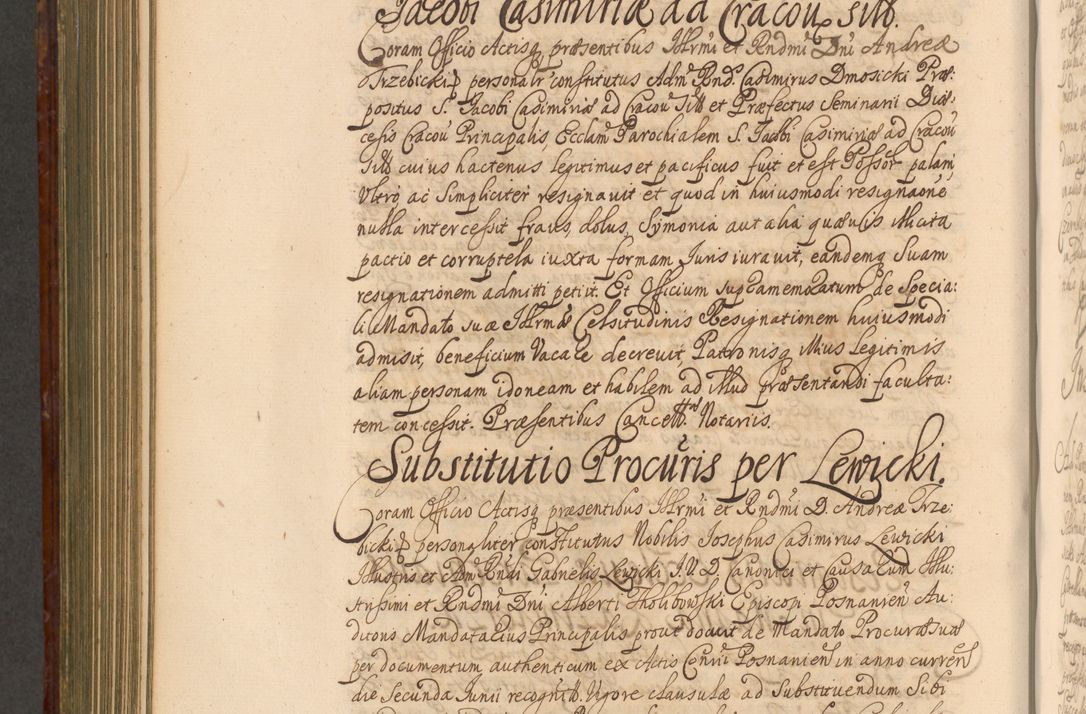 Jacobi Casimiriæ ad Cracou sitb.
Coram Officio Actisq præsentibus Illrmi et Rndmi Dni Andreæ
Trzebicki personalr constitutus Adm Rnd. Casimirus Dmosicki Præ:
positus S. Jacobi Casimiriæ ad Cracou sitt et Præfectus Seminarii Diæ:
cesis Cracou Principalis, Ecclam Parochialem S. Jacobi Casimiriæ ad Cracou
sitt cuius hactenus legitimus et pacificus fuit et est Possor palam,
Vltro ac Simpliciter resignauit et quod in huiusmodi resignaone
nulla intercessit fraus, dolus, Symonia aut alia quæuis illicita
pactio et corruptela iuxta formam Juris iurauit, eandemq Suam
resignationem admitti petiit. Et Officium supramemoratum de specia:
li Mandato suæ Illrmæ Celsitudinis Resignationem huiusmodi
admisit, beneficium Vacare decreuit, Patronisq illius legitimis
aliam personam idoneam et habilem ad illud præsentandi faculta:
tem concessit. Præsentibus Cancell. Notariis.
Substitutio Procuris per Lewicki.
Coram Officio Actisq præsentibus Illrmi et Rndmi D. Andreæ Trze:
bicki personaliter constitutus Nobilis Josephus Casimirus Lewicki
Illustris et Adm Rndi Gabrielis Lewicki J.U.D. Canonici et Causarum Illu:
strissimi et Rndmi Dni Alberti Tholibowski Episcopi Posnanien Au:
ditoris Mandatarius Principalis prout docuit de Mandato Procuræ suæ
per documentum authenticum ex Actio Consii Posnanien in anno curren
die secunda Junii recognit. Vigore clausulæ ad substituendum Sibi